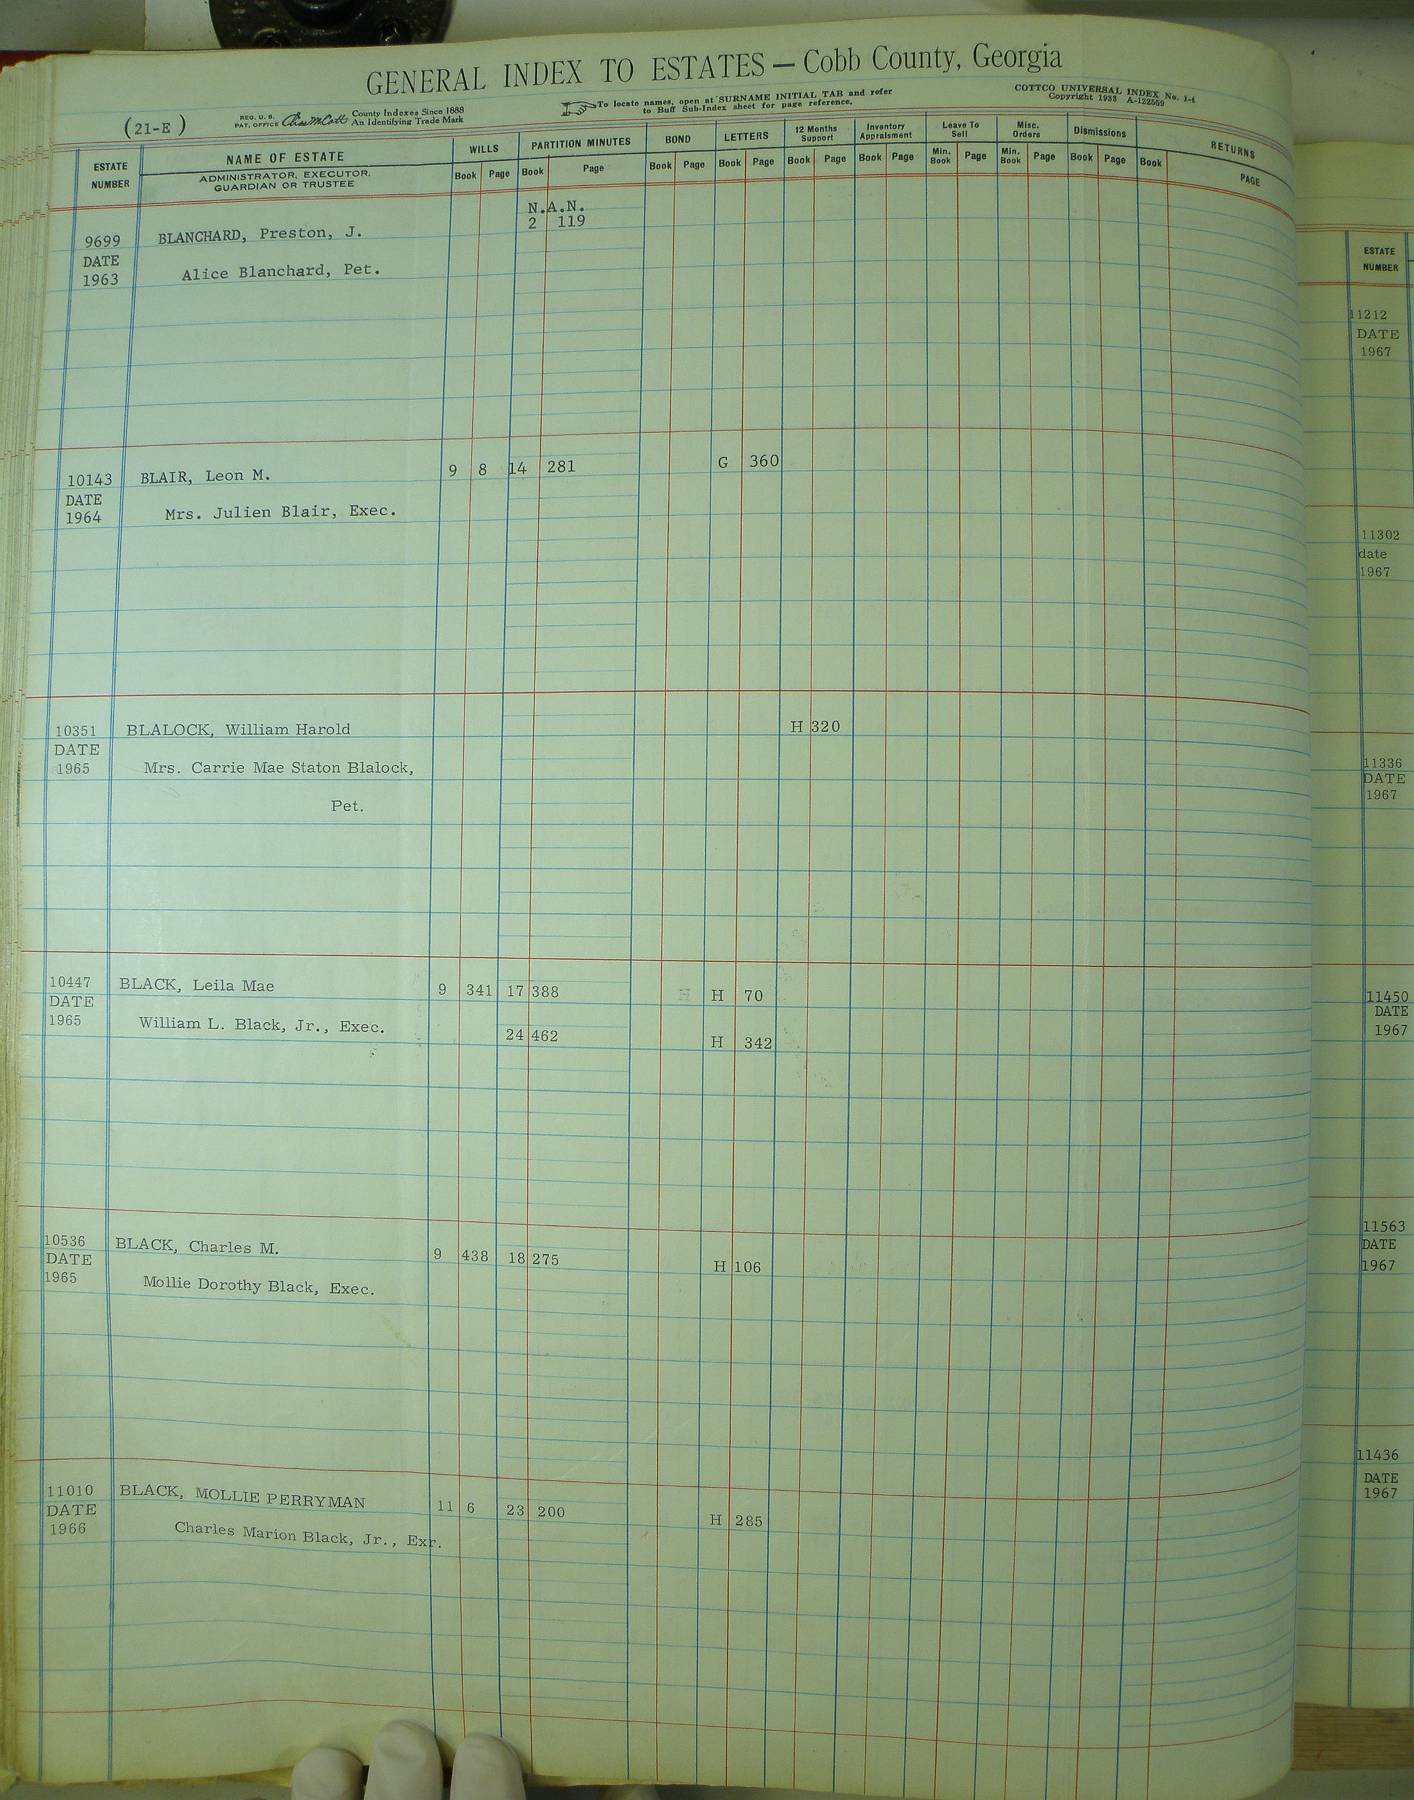 GENERAL INDEX TO ESTATES — Cobb County, Georgia
(21-E)
REG. U.S. PAT. OFFICE
County Indexes Since 1888
An Identifying Trade Mark
To locate names, open at SURNAME INITIAL TAB and refer
to Buff Sub-Index sheet for page reference.
COTTCO UNIVERSAL INDEX No. I-4
Copyright 1938 A-122559
ESTATE NUMBER
NAME OF ESTATE
ADMINISTRATOR, EXECUTOR, GUARDIAN OR TRUSTEE
WILLS Book Page
PARTITION MINUTES Book Page
BOND Book Page
LETTERS Book Page
12 Months Support Book Page
Inventory Appraisment Book Page
Leave To Sell Min. Book Page
Misc. Orders Min. Book Page
Dismissions Book Page
RETURNS Book PAGE
N.A.N.
9699 BLANCHARD, Preston, J. 2 119
DATE
1963 Alice Blanchard, Pet.
10143 BLAIR, Leon M. 9 8 14 281 G 360
DATE
1964 Mrs. Julien Blair, Exec.
10351 BLALOCK, William Harold H 320
DATE
1965 Mrs. Carrie Mae Staton Blalock,
Pet.
10447 BLACK, Leila Mae 9 341 17 388 H H 70
DATE
1965 William L. Black, Jr., Exec. 24 462 H 342
10536 BLACK, Charles M. 9 438 18 275 H 106
DATE
1965 Mollie Dorothy Black, Exec.
11010 BLACK, MOLLIE PERRYMAN 11 6 23 200 H 285
DATE
1966 Charles Marion Black, Jr., Exr.
ESTATE
NUMBER
11212
DATE
1967
11302
date
1967
11336
DATE
1967
11450
DATE
1967
11563
DATE
1967
11436
DATE
1967